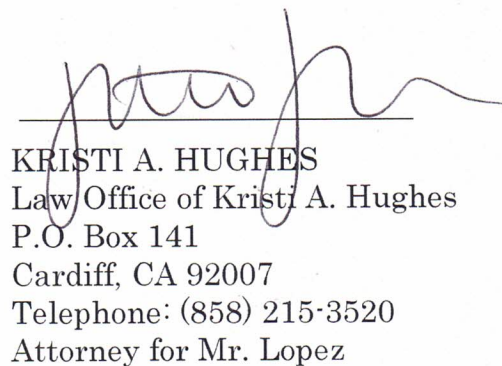 KRISTI A. HUGHES
Law Office of Kristi A. Hughes
P.O. Box 141
Cardiff, CA 92007
Telephone: (858) 215-3520
Attorney for Mr. Lopez